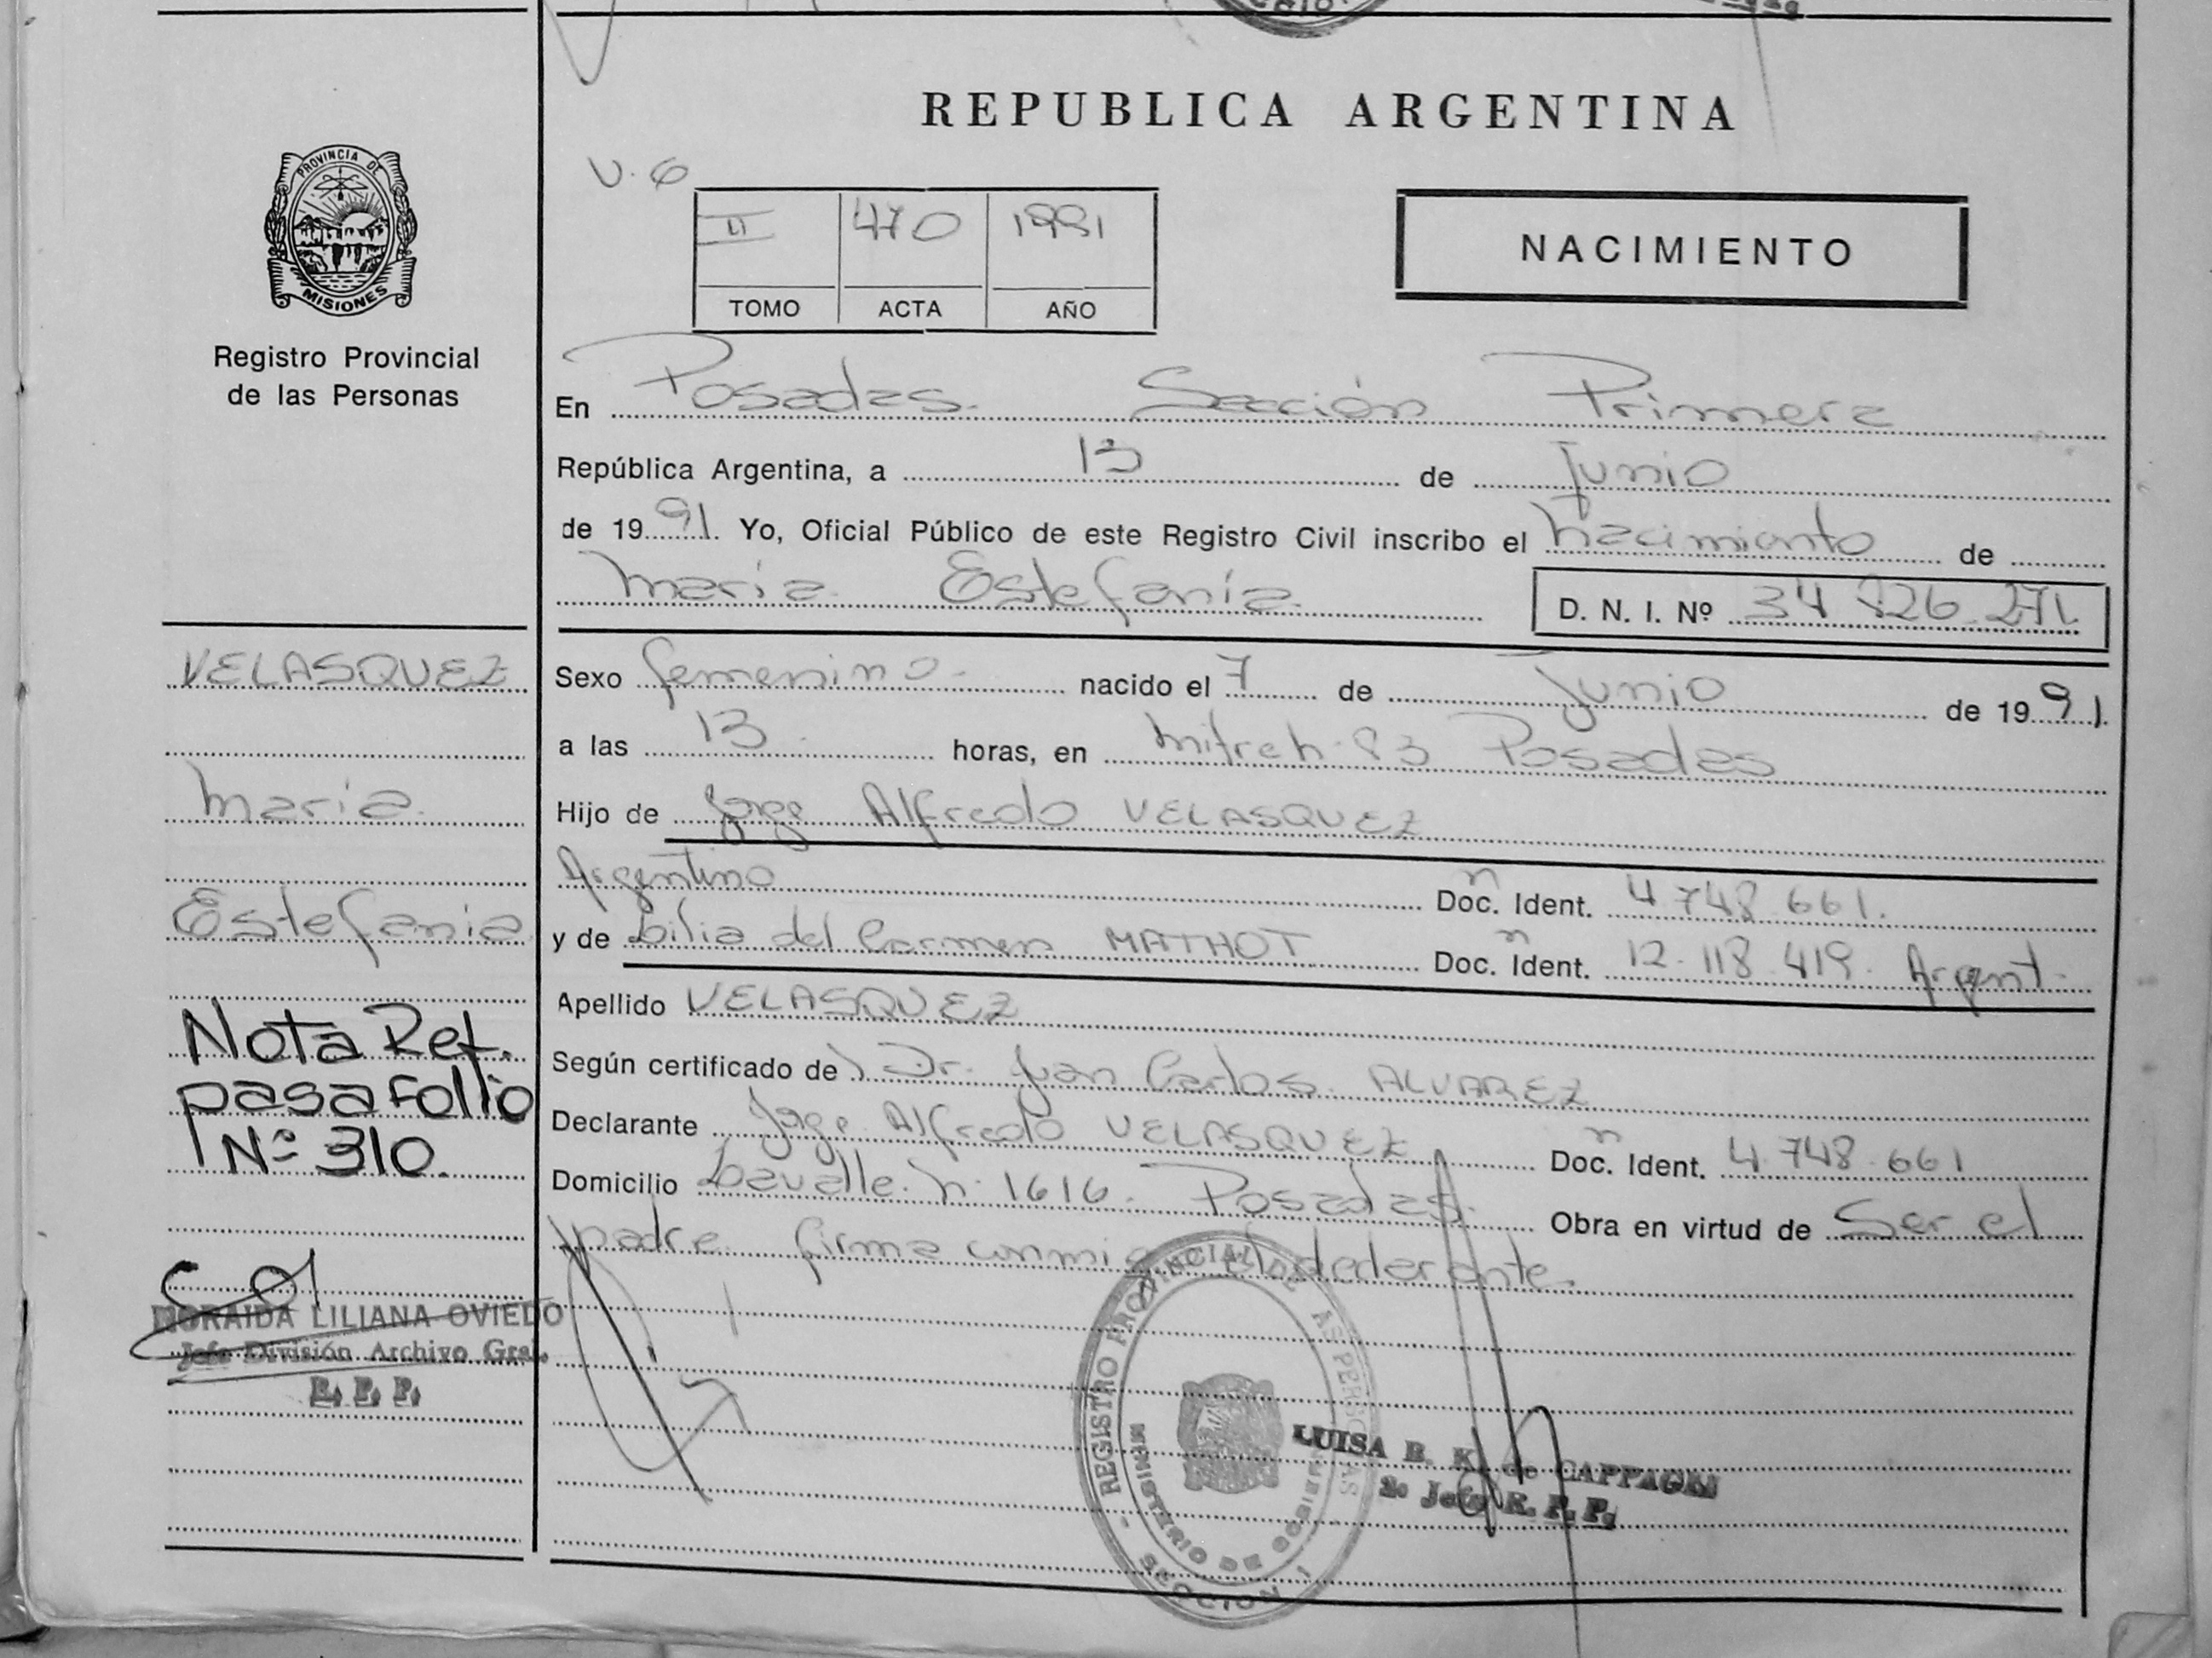 REPUBLICA ARGENTINA
PROVINCIA DE
MISIONES
Registro Provincial
de las Personas
V. 6
II 470 1991
TOMO ACTA AÑO
NACIMIENTO
En Posadas. Sección Primera
República Argentina, a 13 de Junio
de 19 91. Yo, Oficial Público de este Registro Civil inscribo el nacimiento de
María Estefanía
D. N. I. Nº 34 826 271
Sexo femenino.- nacido el 7 de Junio de 19 91.
a las 13 horas, en Mitre n. 83 Posadas
Hijo de Jorge Alfredo VELASQUEZ
Argentino Doc. n Ident. 4 748 661.
y de Lilia del Carmen MATHOT Doc. n Ident. 12.118.419. Argent.
Apellido VELASQUEZ
Según certificado de Dr. Juan Carlos ALVAREZ
Declarante Jorge Alfredo VELASQUEZ Doc. n Ident. 4.748.661
Domicilio Lavalle n. 1616. Posadas. Obra en virtud de Ser el
padre. firma conmigo el declarante.
VELASQUEZ
María
Estefania
Nota Ref.
pasa folio
Nº 310.
NORAIDA LILIANA OVIEDO
Jefe División Archivo Gral.
R. P. P.
REGISTRO PROVINCIAL DE LAS PERSONAS
MINISTERIO DE GOBIERNO
SECCION I
LUISA B. K. de CAPPAGLI
2º Jefe R. P. P.